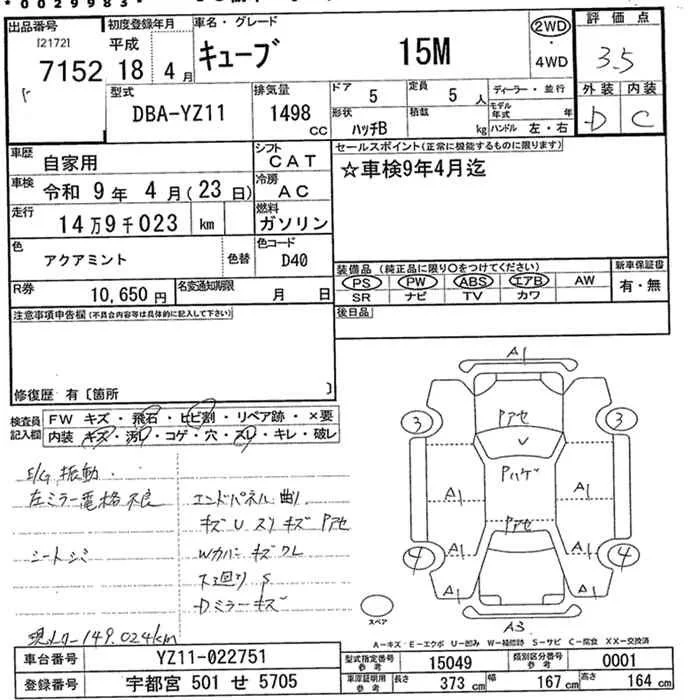 *0029983*
出品番号 初度登録年月 車名・グレード 2WD・4WD 評価点
[2172]
7152 平成 18年 4月 キューブ 15M 3.5
型式 排気量 ドア 定員 ディーラー・並行 外装 内装
DBA-YZ11 1498 CC 5 5人 モデル年式 年 D C
形状 積載 ハンドル 左・右
ハッチB kg
車歴 自家用 シフト CAT セールスポイント(正常に機能するものに限ります)
車検 令和 9年 4月(23日) 冷房 AC ☆車検9年4月迄
走行 14万9千023 km 燃料 ガソリン
色 アクアミント 色替 色コード D40
装備品 (純正品に限り○をつけてください) 新車保証書
PS PW ABS エアB AW 有・無
SR ナビ TV カワ
R券 10,650円 名変通知期限 月 日
後日品
注意事項申告欄(不具合内容等は具体的に記入して下さい)
修復歴 有〔箇所 〕
検査員記入欄 FW キズ・飛石・ヒビ割・リペア跡・×要
内装 キズ・汚レ・コゲ・穴・スレ・キレ・破レ
E/G 振動
左ミラー電格不良 エンドパネル 曲り
キズ U スリキズ Pアセ
シートシミ Wカバーキズワレ
下廻り S
Dミラーキズ
現メーター149,024km
A1
Pアセ
3 3
V
Pハゲ
A1 A1
Pアセ
4 4
A1 A1
A3
スペア
A-キズ E-エクボ U-凹み W-補修跡 S-サビ C-腐食 XX-交換済
車台番号 YZ11-022751 型式指定番号 参考 15049 類別区分番号 参考 0001
登録番号 宇都宮 501 せ 5705 車庫証明用 参考 長さ 373 cm 幅 167 cm 高さ 164 cm